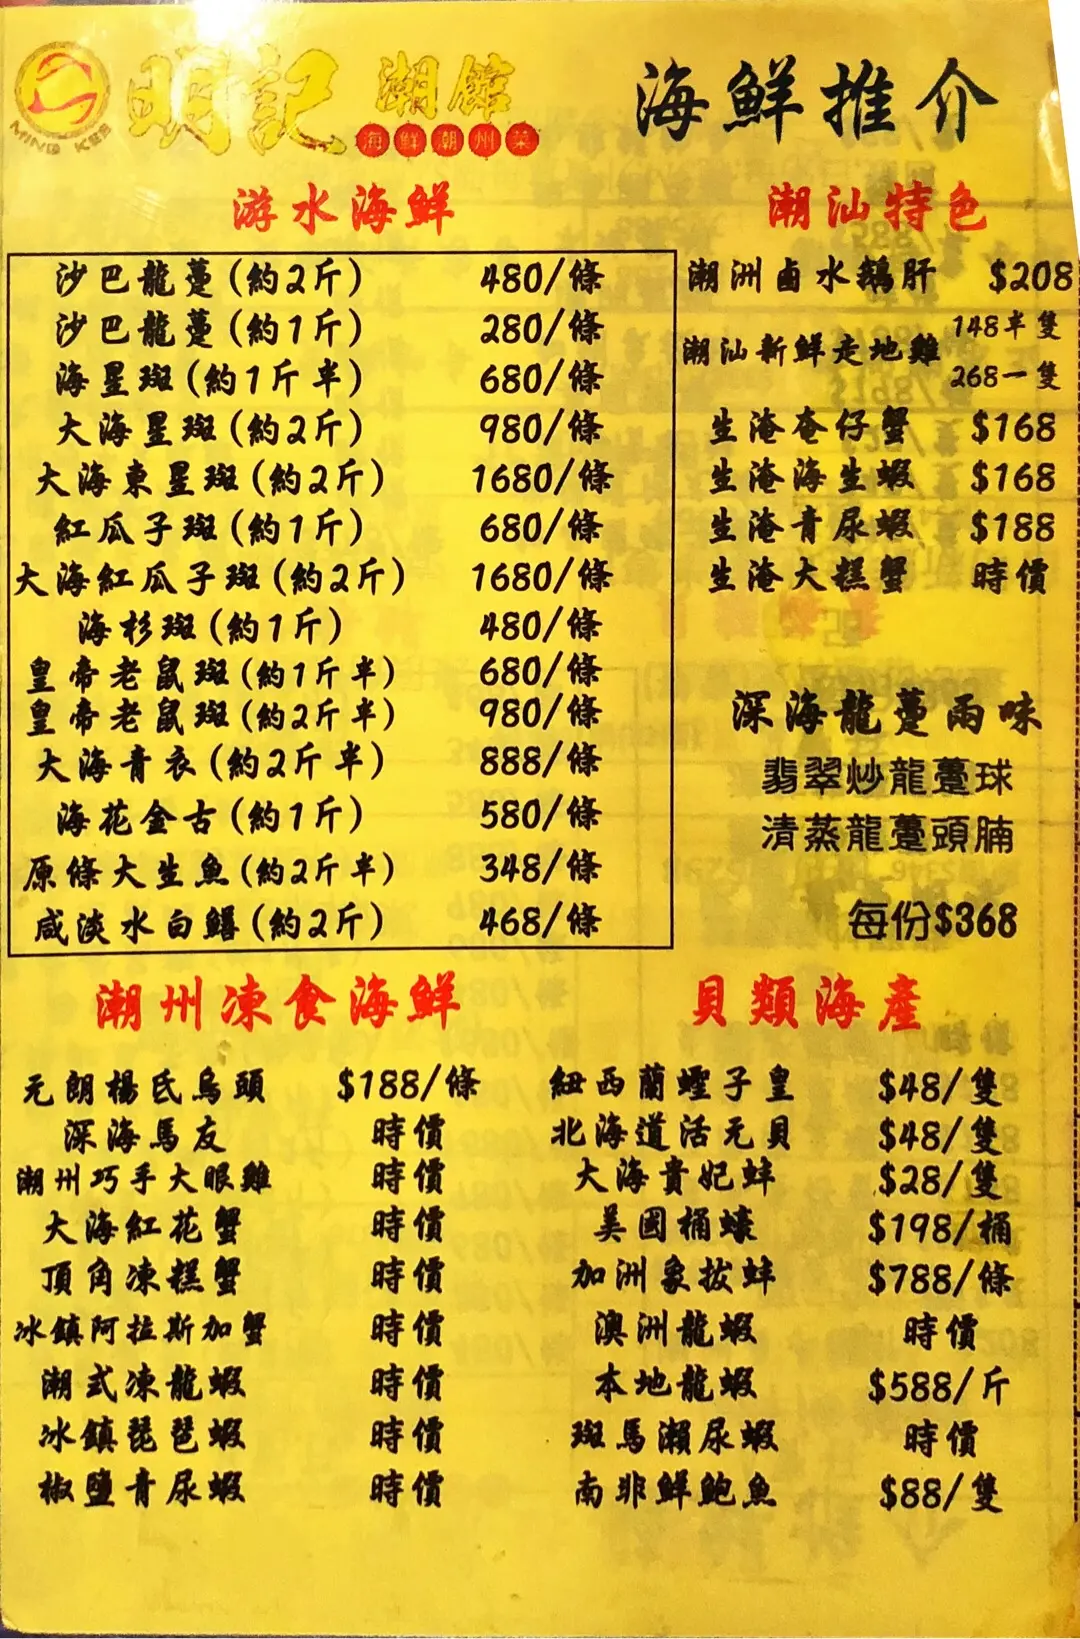 MING KEE
明記 潮館
海鮮潮州菜
海鮮推介
游水海鮮
沙巴龍躉(約2斤) 480/條
沙巴龍躉(約1斤) 280/條
海星斑(約1斤半) 680/條
大海星斑(約2斤) 980/條
大海東星斑(約2斤) 1680/條
紅瓜子斑(約1斤) 680/條
大海紅瓜子斑(約2斤) 1680/條
海杉斑(約1斤) 480/條
皇帝老鼠斑(約1斤半) 680/條
皇帝老鼠斑(約2斤半) 980/條
大海青衣(約2斤半) 888/條
海花金古(約1斤) 580/條
原條大生魚(約2斤半) 348/條
咸淡水白鱔(約2斤) 468/條
潮汕特色
潮洲鹵水鵝肝 $208
潮汕新鮮走地雞 148半隻
268一隻
生淹奄仔蟹 $168
生淹海生蝦 $168
生淹青尿蝦 $188
生淹大糕蟹 時價
深海龍躉兩味
翡翠炒龍躉球
清蒸龍躉頭腩
每份$368
潮州凍食海鮮
元朗楊氏烏頭 $188/條
深海馬友 時價
潮州巧手大眼雞 時價
大海紅花蟹 時價
頂角凍糕蟹 時價
冰鎮阿拉斯加蟹 時價
潮式凍龍蝦 時價
冰鎮琵琶蝦 時價
椒鹽青尿蝦 時價
貝類海產
紐西蘭蟶子皇 $48/隻
北海道活元貝 $48/隻
大海貴妃蚌 $28/隻
美國桶蠔 $198/桶
加洲象拔蚌 $788/條
澳洲龍蝦 時價
本地龍蝦 $588/斤
斑馬瀨尿蝦 時價
南非鮮鮑魚 $88/隻